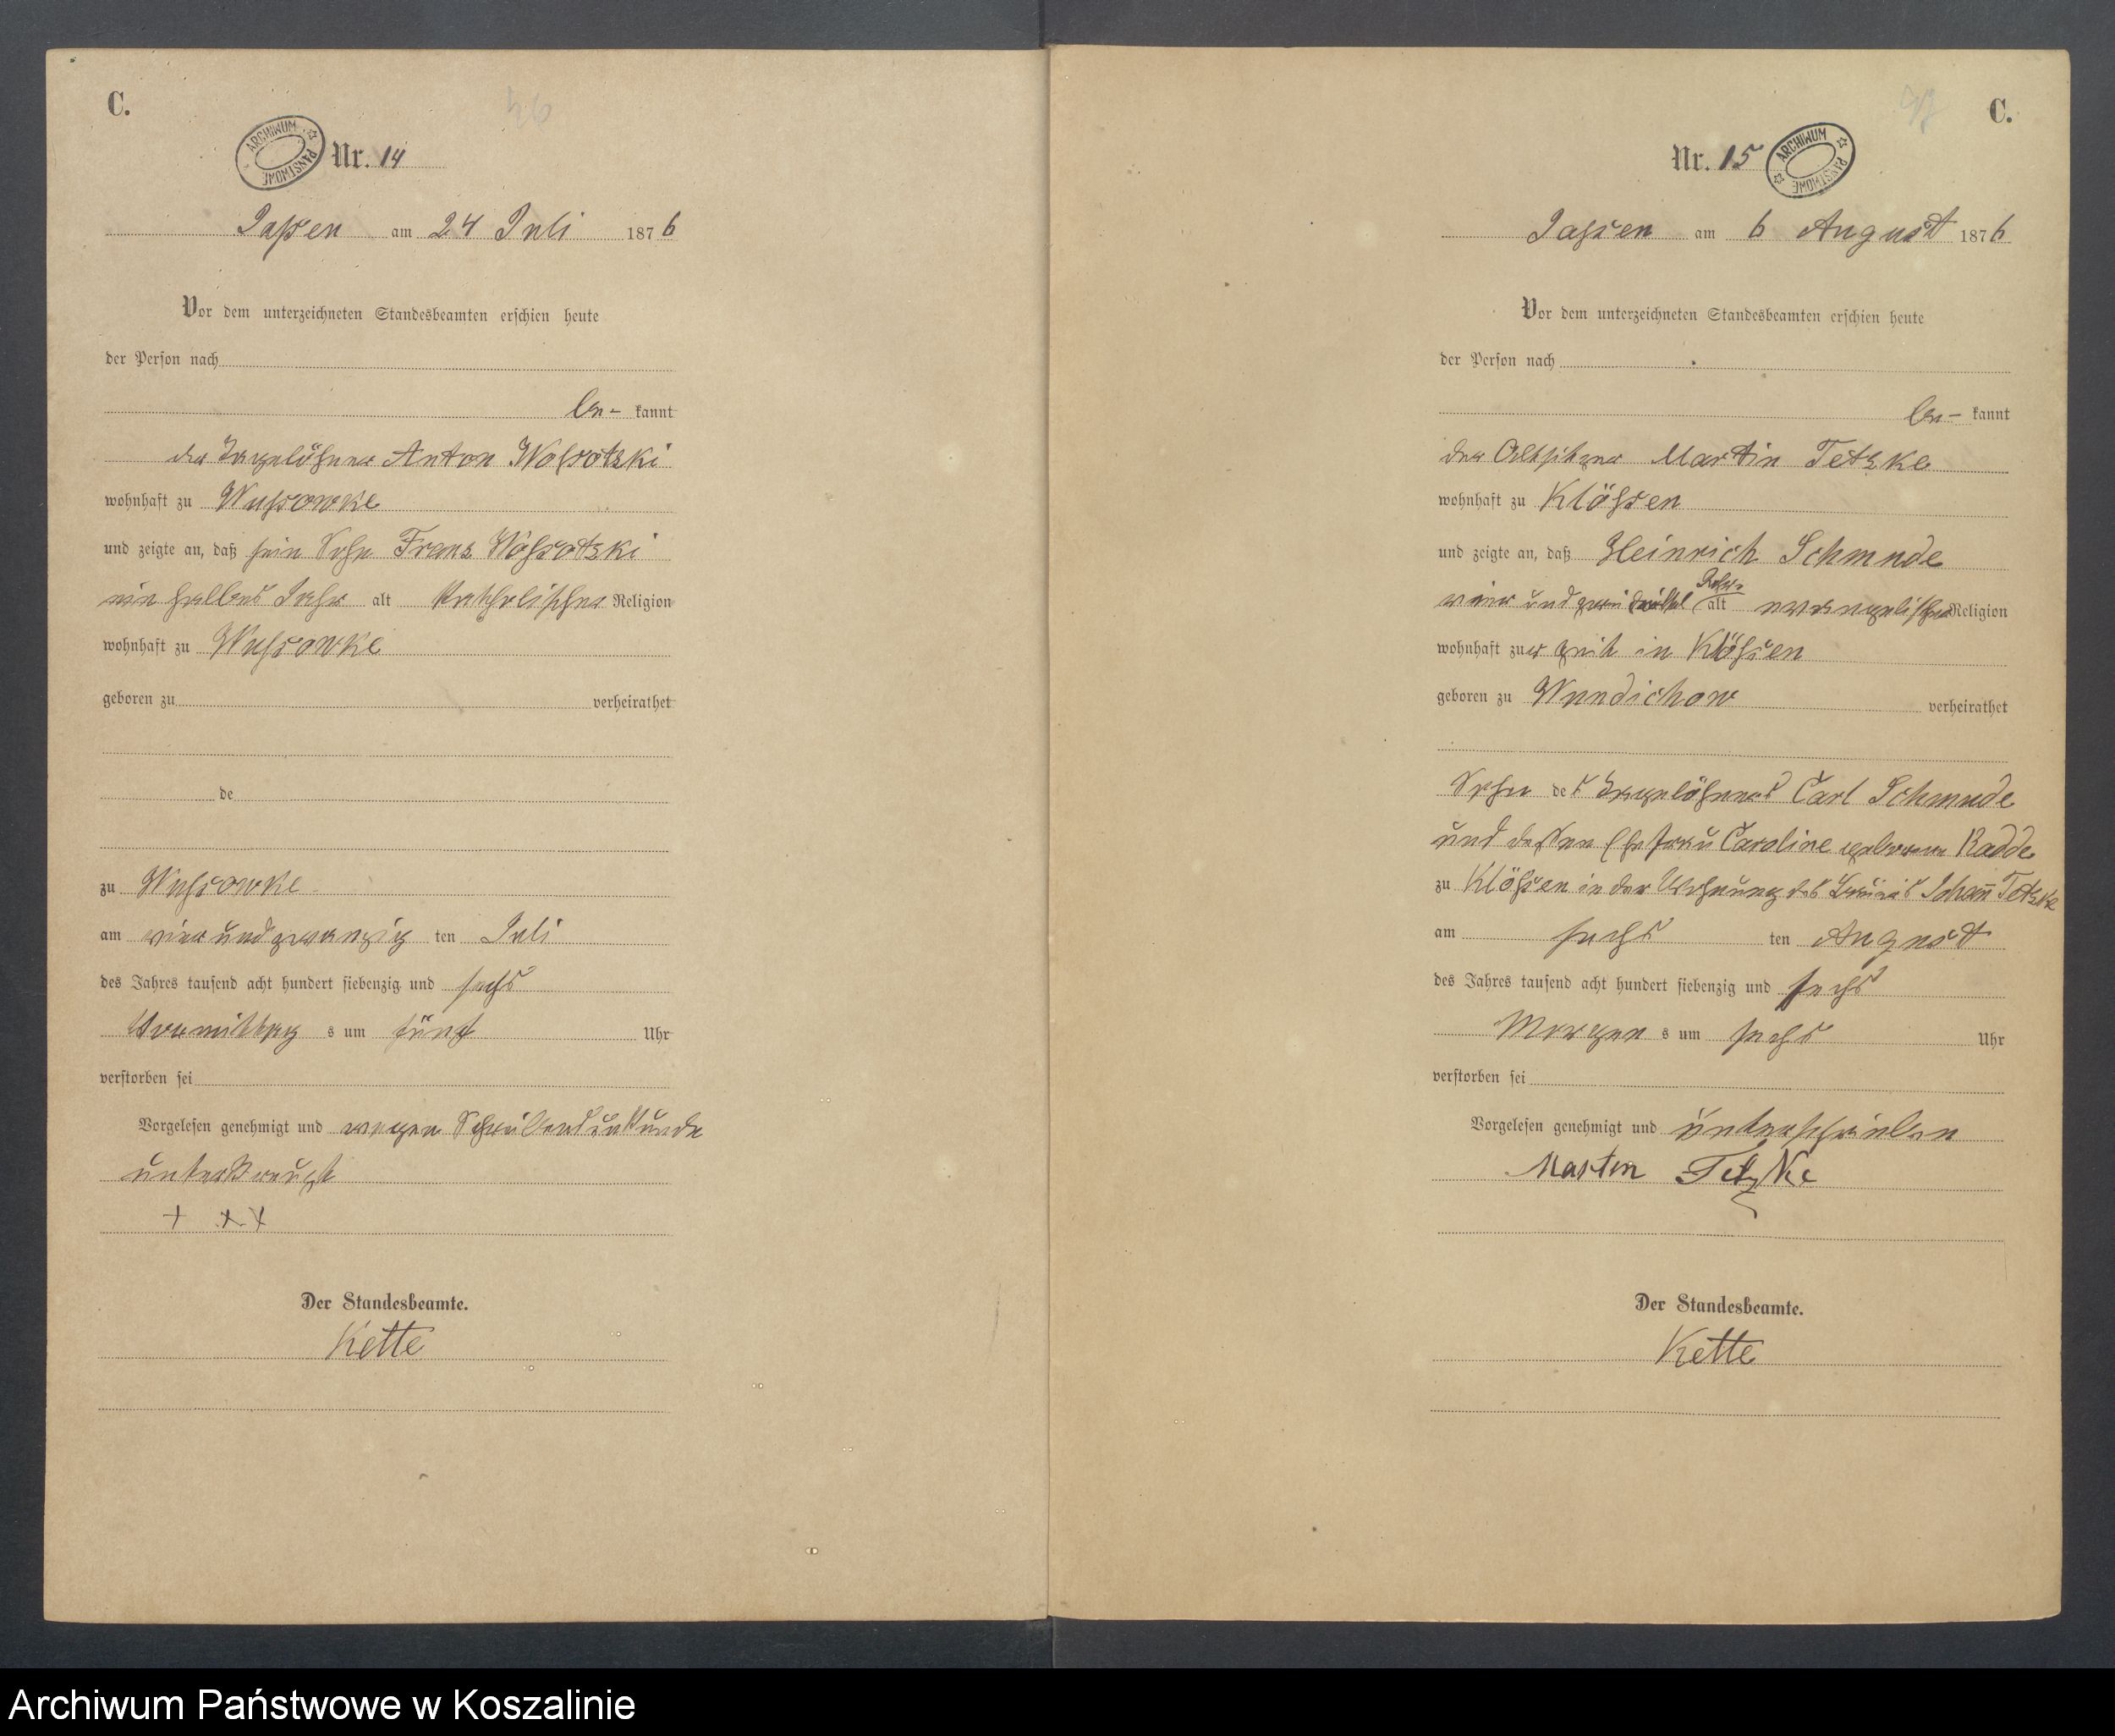 C.
46
ARCHIWUM PAŃSTWOWE
Nr. 14
Jassen am 24 Juli 1876
Vor dem unterzeichneten Standesbeamten erschien heute
der Person nach
be- kannt
der Tagelöhner Anton Wossotzki
wohnhaft zu Wussowke
und zeigte an, daß sein Sohn Franz Wossotzki
ein halbes Jahr alt katholischer Religion
wohnhaft zu Wussowke
geboren zu verheirathet
de
zu Wussowke
am vier und zwanzig ten Juli
des Jahres tausend acht hundert siebenzig und sechs
Vormittag s um fünf Uhr
verstorben sei
Vorgelesen genehmigt und wegen Schreibensunkunde
unterkreuzt
+ + +
Der Standesbeamte.
Kette
C.
Nr. 15
ARCHIWUM PAŃSTWOWE
Jassen am 6 August 1876
Vor dem unterzeichneten Standesbeamten erschien heute
der Person nach
be- kannt
der Altsitzer Martin Tetzke
wohnhaft zu Klössen
und zeigte an, daß Heinrich Schmude
Jahr
vier und zwei drittel alt evangelischer Religion
wohnhaft zur Zeit in Klössen
geboren zu Wundichow verheirathet
Sohn des Tagelöhners Carl Schmude
und dessen Ehefrau Caroline geborene Radde
zu Klössen in der Wohnung des Johann Tetzke
am sechs ten August
des Jahres tausend acht hundert siebenzig und sechs
Morgen s um sechs Uhr
verstorben sei
Vorgelesen genehmigt und unterschrieben
Martin Tetzke
Der Standesbeamte.
Kette
Archiwum Państwowe w Koszalinie